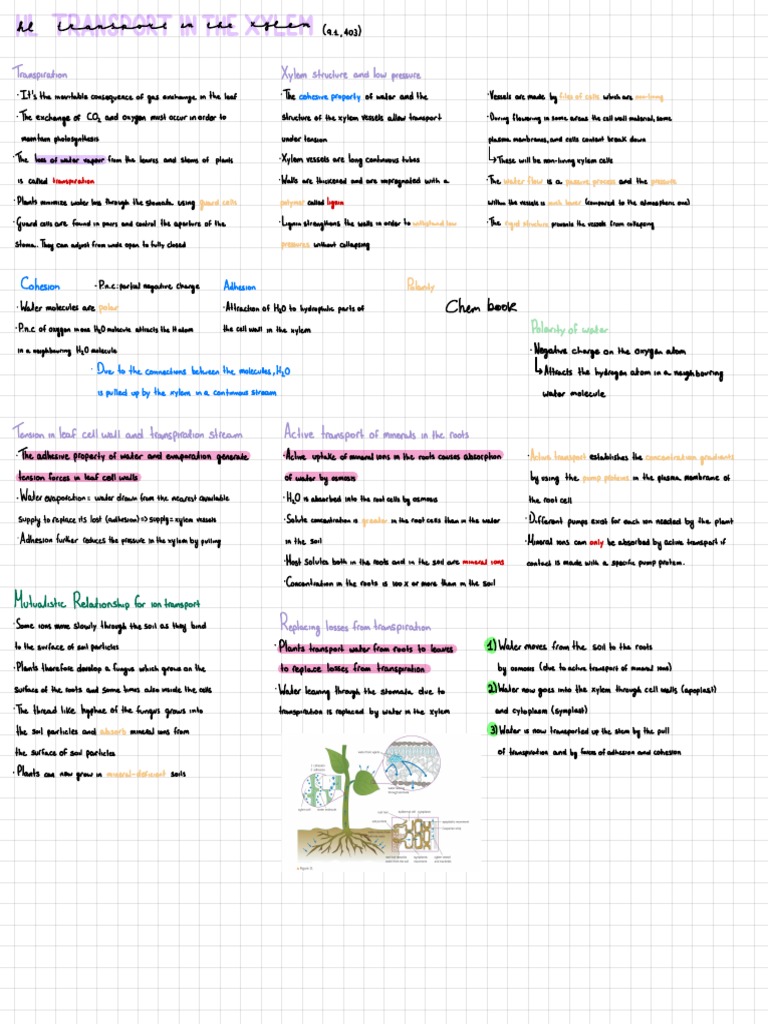 HL TRANSPORT IN THE XYLEM
HL transport in the xylem (9.1, 403)
Transpiration
· It's the inevitable consequence of gas exchange in the leaf
· The exchange of CO2 and oxygen must occur in order to
maintain photosynthesis
· The loss of water vapour from the leaves and stems of plants
is called transpiration
· Plants minimize water loss through the stomata using guard cells
· Guard cells are found in pairs and control the aperture of the
stoma. They can adjust from wide open to fully closed
Xylem structure and low pressure
· The cohesive property of water and the
structure of the xylem vessels allow transport
under tension
· Xylem vessels are long continuous tubes
· Walls are thickened and are impregnated with a
polymer called lignin
· Lignin strengthens the walls in order to withstand low
pressures without collapsing
· Vessels are made by files of cells which are non-living
· During flowering in some areas the cell wall material, some
plasma membranes, and cells content break down
↳ These will be non-living xylem cells
· The water flow is a passive process and the pressure
within the vessels is much lower (compared to the atmospheric one)
· The rigid structure prevents the vessels from collapsing
Cohesion
· P.n.c: partial negative charge
· Water molecules are polar
· P.n.c of oxygen in one H2O molecule attracts the H atom
in a neighbouring H2O molecule
· Due to the connections between the molecules, H2O
is pulled up by the xylem in a continuous stream
Adhesion
· Attraction of H2O to hydrophilic parts of
the cell wall in the xylem
Polarity
Chem book
Polarity of water
· Negative charge on the oxygen atom
↳ Attracts the hydrogen atom in a neighbouring
water molecule
Tension in leaf cell wall and transpiration stream
· The adhesive property of water and evaporation generate
tension forces in leaf cell walls
· Water evaporation = water drawn from the nearest available
supply to replace its lost (adhesion) => supply = xylem vessels
· Adhesion further reduces the pressure in the xylem by pulling
Active transport of minerals in the roots
· Active uptake of mineral ions in the roots causes absorption
of water by osmosis
· H2O is absorbed into the root cells by osmosis
· Solute concentration is greater in the root cells than in the water
in the soil
· Most solutes both in the roots and in the soil are mineral ions
· Concentration in the roots is 100x or more than in the soil
· Active transport establishes the concentration gradients
by using the pump proteins in the plasma membrane of
the root cell
· Different pumps exist for each ion needed by the plant
· Mineral ions can only be absorbed by active transport if
contact is made with a specific pump protein.
Mutualistic Relationship for ion transport
· Some ions move slowly through the soil as they bind
to the surface of soil particles
· Plants therefore develop a fungus which grows on the
surface of the roots and some times also inside the cells
· The thread like hyphae of the fungus grows into
the soil particles and absorb mineral ions from
the surface of soil particles
· Plants can now grow in mineral-deficient soils
Replacing losses from transpiration
· Plants transport water from roots to leaves
to replace losses from transpiration
· Water leaving through the stomata due to
transpiration is replaced by water in the xylem
1) Water moves from the soil to the roots
by osmosis (due to active transport of mineral ions)
2) Water now goes into the xylem through cell walls (apoplast)
and cytoplasm (symplast)
3) Water is now transported up the stem by the pull
of transpiration and by forces of adhesion and cohesion